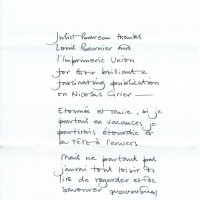 Juliet Bareau thanks
Louis Barnier and
l'Imprimerie Union
for their brilliant &
fascinating publication
on Nicolas Grier —
Etonnée et ravie, si je
partais en vacances je
partirais étourdie et
la tête à l'envers
Mais ne partant pas
j'aurai tout loisir de
lire de regarder et de
savourer